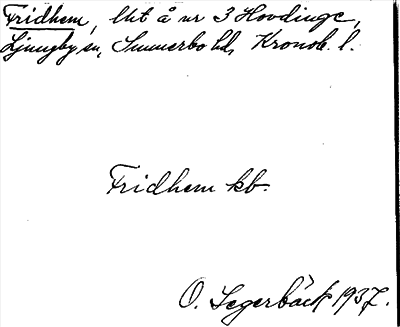 Fridhem, lht å nr 3 Hovdinge,
Ljungby sn, Sunnerbo hd, Kronob. l.
Fridhem kb.
O. Segerbäck 1937.